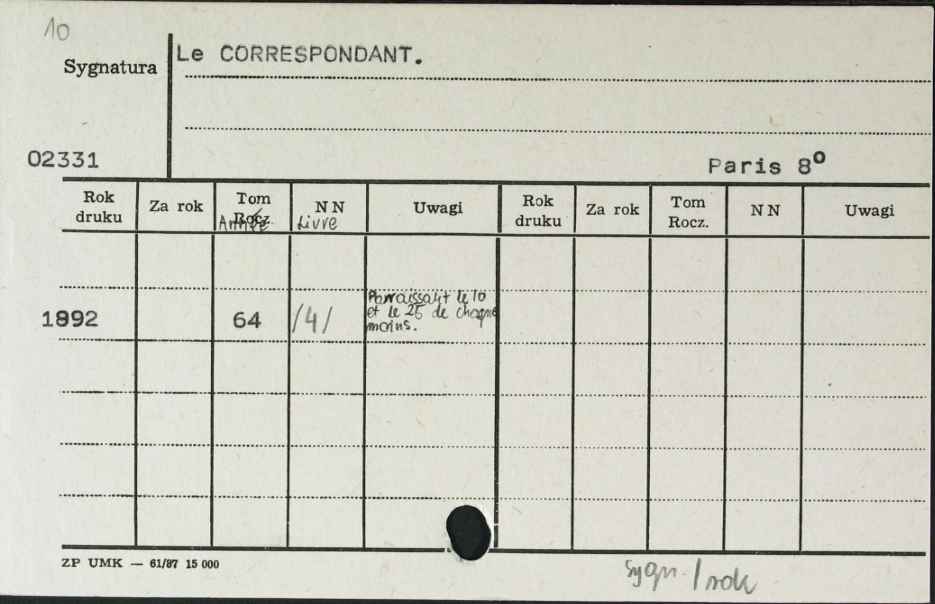 10
Sygnatura
Le CORRESPONDANT.
02331
Paris 8º
Rok druku Za rok Tom Rocz. N N Uwagi Rok druku Za rok Tom Rocz. N N Uwagi
Année Livre
1892 64 /4/ Parraissant le 10
et le 25 de chaque
moins.
ZP UMK — 61/87 15 000
Sygn. / rok